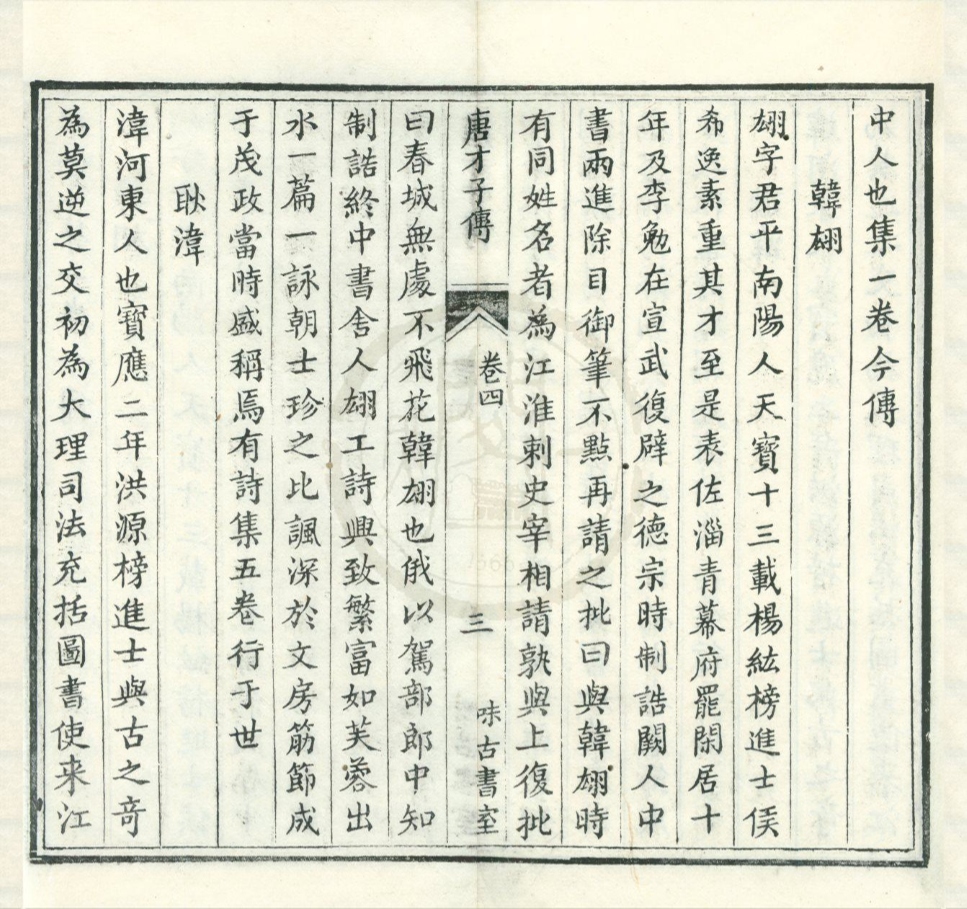 中人也集一卷今傳
韓翃
翃字君平南陽人天寶十三載楊紘榜進士侯
希逸素重其才至是表佐淄青幕府罷閑居十
年及李勉在宣武復辟之德宗時制誥闕人中
書兩進除目御筆不點再請之批曰與韓翃時
有同姓名者為江淮刺史宰相請孰與上復批
唐才子傳 卷四 三 味古書室
曰春城無處不飛花韓翃也俄以駕部郎中知
制誥終中書舍人翃工詩興致繁富如芙蓉出
水一篇一詠朝士珍之比諷深於文房筋節成
于茂政當時盛稱焉有詩集五卷行于世
耿湋
湋河東人也寶應二年洪源榜進士與古之奇
為莫逆之交初為大理司法充括圖書使来江